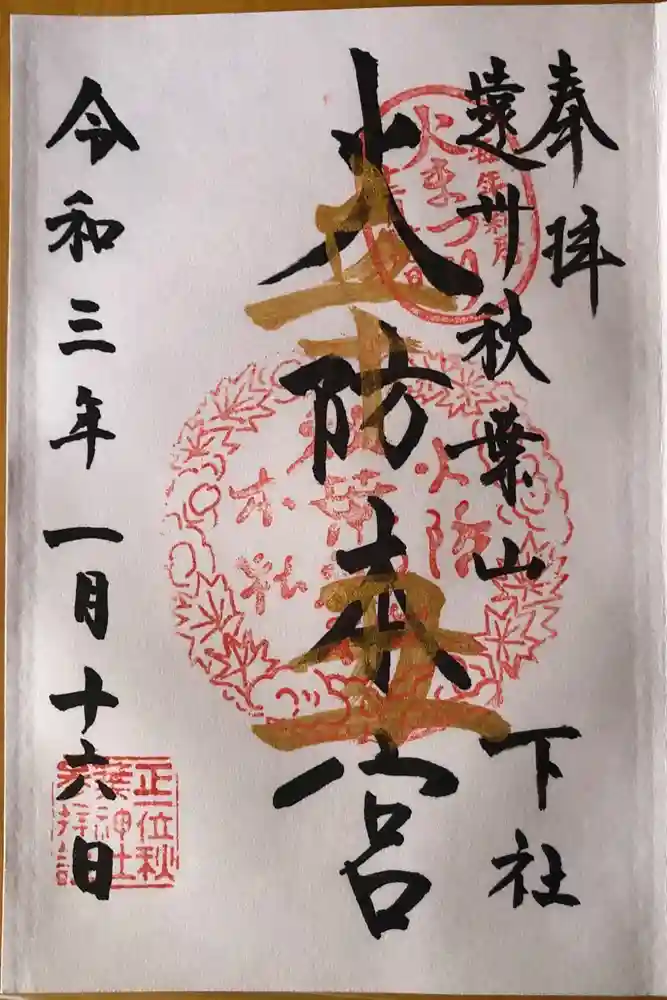 奉拝
遠州秋葉山 下社
火まつり
火防本宮
火防
秋葉
本社
令和三年一月十六日
正一位秋
葉神社